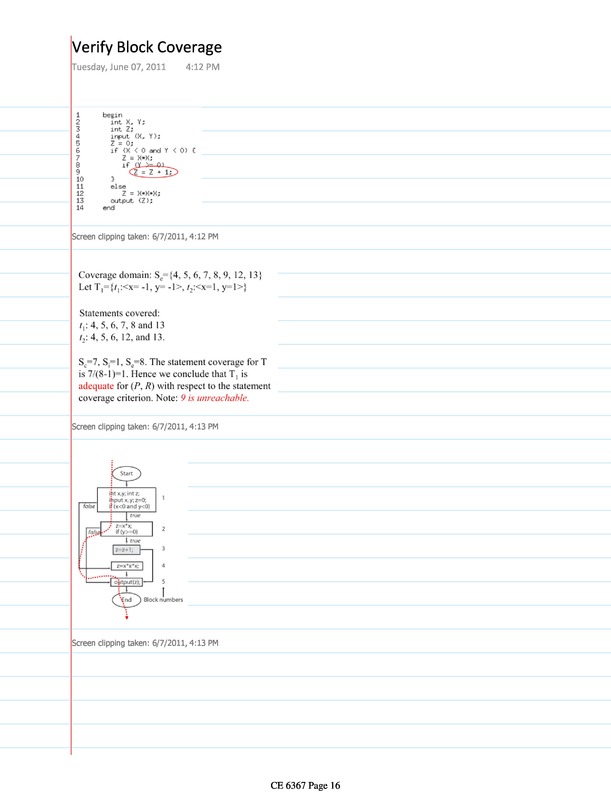 Verify Block Coverage
Tuesday, June 07, 2011 4:12 PM
1 begin
2 int X, Y;
3 int Z;
4 input (X, Y);
5 Z = 0;
6 if (X < 0 and Y < 0) {
7 Z = X*X;
8 if (Y >= 0)
9 Z = Z + 1;
10 }
11 else
12 Z = X*X*X;
13 output (Z);
14 end
Screen clipping taken: 6/7/2011, 4:12 PM
Coverage domain: Se={4, 5, 6, 7, 8, 9, 12, 13}
Let T1={t1:<x= -1, y= -1>, t2:<x=1, y=1>}
Statements covered:
t1: 4, 5, 6, 7, 8 and 13
t2: 4, 5, 6, 12, and 13.
Sc=7, Si=1, Se=8. The statement coverage for T
is 7/(8-1)=1. Hence we conclude that T1 is
adequate for (P, R) with respect to the statement
coverage criterion. Note: 9 is unreachable.
Screen clipping taken: 6/7/2011, 4:13 PM
Start
int x,y; int z;
input x, y; z=0;
if (x<0 and y<0)
1
false
true
z=x*x;
if (y>=0)
2
false
true
z=z+1;
3
z=x*x*x;
4
output(z);
5
End
Block numbers
Screen clipping taken: 6/7/2011, 4:13 PM
CE 6367 Page 16